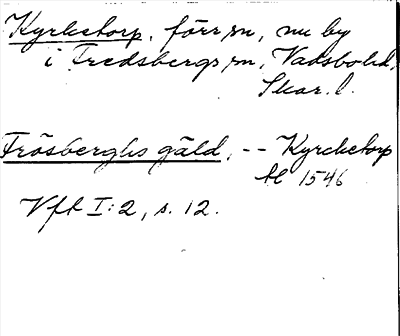 Kyrketorp, förr sn, nu by
i Fredsbergs sn, Vadsbo hd,
Skar. l.
Frösberghs gäld, -- Kyrcketorp
1546
Vft I:2, s. 12.